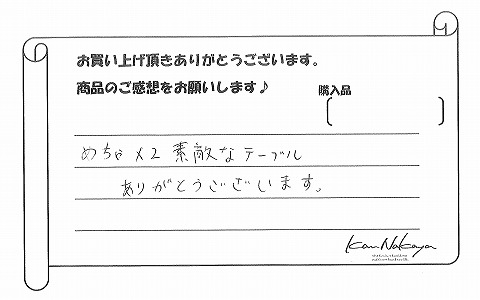 お買い上げ頂きありがとうございます。
商品のご感想をお願いします♪
購入品
めちゃ×2 素敵なテーブル
ありがとうございます。